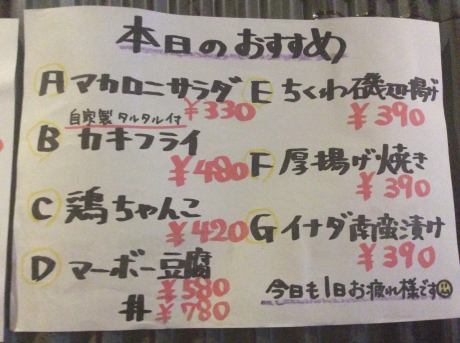 本日のおすすめ
A マカロニサラダ
¥330
自家製タルタル付
B カキフライ
¥480
C 鶏ちゃんこ
¥420
D マーボー豆腐
¥580
丼 ¥780
E ちくわ磯辺揚げ
¥390
F 厚揚げ焼き
¥390
G イナダ南蛮漬け
¥390
今日も1日お疲れ様です